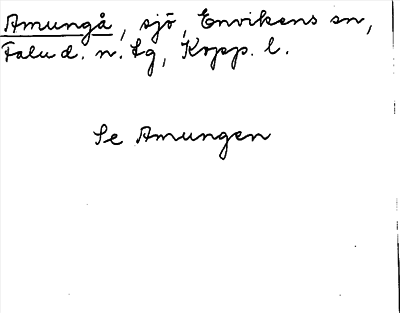 Amungå, sjö, Envikens sn,
Falu d. n. tg, Kopp. l.
Se Amungen